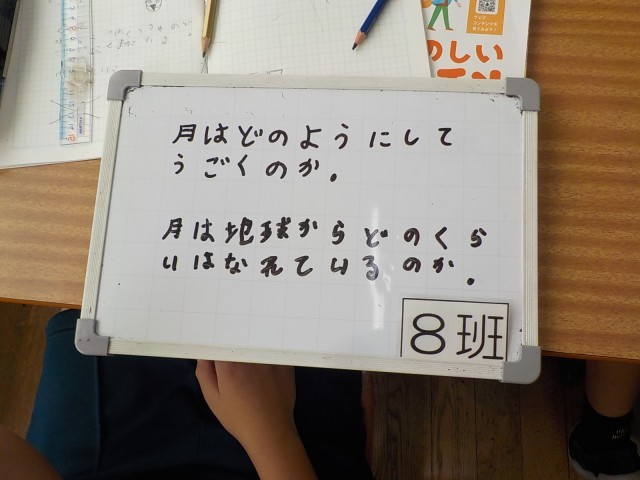 月はどのようにして
うごくのか。
月は地球からどのくら
いはなれているのか。
8班
のしい